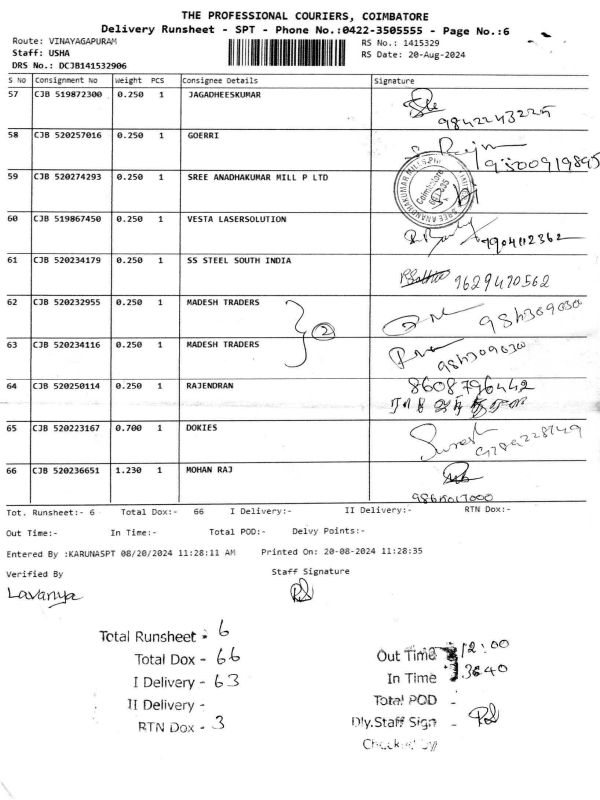 THE PROFESSIONAL COURIERS, COIMBATORE
Delivery Runsheet - SPT - Phone No.:0422-3505555 - Page No.:6
Route: VINAYAGAPURAM RS No.: 1415329
Staff: USHA RS Date: 20-Aug-2024
DRS No.: DCJB141532906
S No Consignment No Weight PCS Consignee Details Signature
57 CJB 519872300 0.250 1 JAGADHEESKUMAR
9842243225
58 CJB 520257016 0.250 1 GOERRI
59 CJB 520274293 0.250 1 SREE ANADHAKUMAR MILL P LTD
60 CJB 519867450 0.250 1 VESTA LASERSOLUTION
61 CJB 520234179 0.250 1 SS STEEL SOUTH INDIA 9629470562
62 CJB 520232955 0.250 1 MADESH TRADERS
2
63 CJB 520234116 0.250 1 MADESH TRADERS
64 CJB 520250114 0.250 1 RAJENDRAN 8608796442
65 CJB 520223167 0.700 1 DOKIES Suresh
66 CJB 520236651 1.230 1 MOHAN RAJ
Tot. Runsheet:- 6 Total Dox:- 66 I Delivery:- II Delivery:- RTN Dox:-
Out Time:- In Time:- Total POD:- Delvy Points:-
Entered By :KARUNASPT 08/20/2024 11:28:11 AM Printed On: 20-08-2024 11:28:35
Verified By Staff Signature
Lavanya
Total Runsheet - 6
Total Dox - 66
I Delivery - 63
II Delivery -
RTN Dox - 3
Out Time 12:00
In Time
Total POD -
Dly.Staff Sign -
Checked by